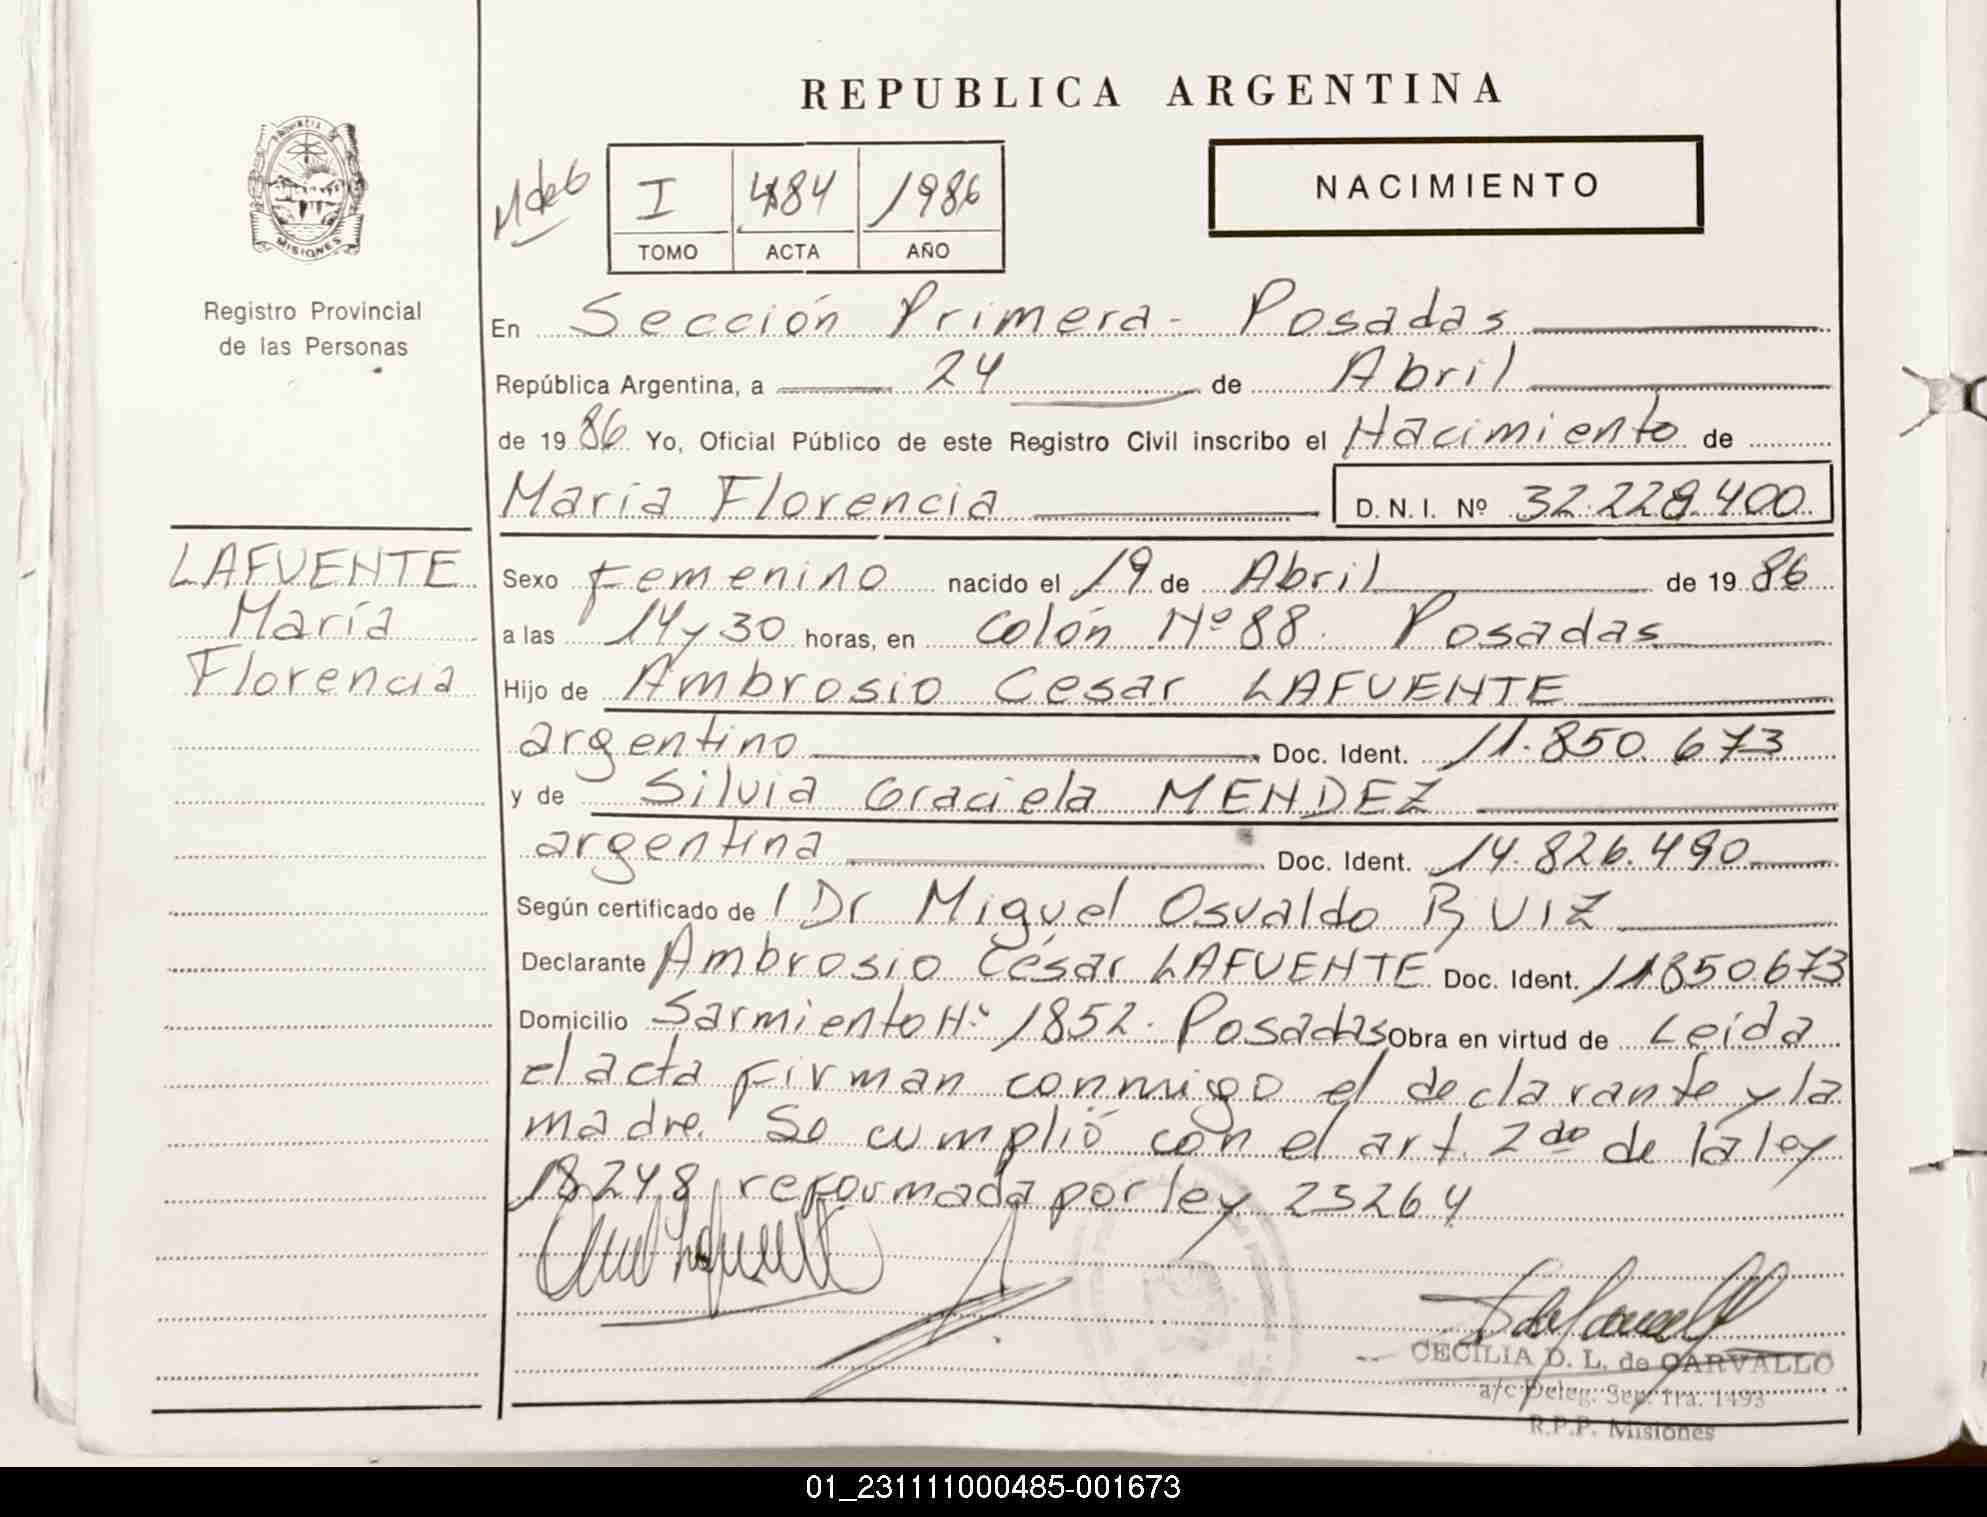 REPUBLICA ARGENTINA
PROVINCIA DE
MISIONES
Registro Provincial
de las Personas
I 484 1986
TOMO ACTA AÑO
NACIMIENTO
En Sección Primera - Posadas
República Argentina, a 24 de Abril
de 1986 Yo, Oficial Público de este Registro Civil inscribo el Nacimiento de
María Florencia D.N.I. Nº 32.228.400
LAFUENTE
María
Florencia
Sexo Femenino nacido el 19 de Abril de 1986
a las 14 y 30 horas, en Colón Nº 88. Posadas
Hijo de Ambrosio Cesar LAFUENTE
argentino Doc. Ident. 11.850.673
y de Silvia Graciela MENDEZ
argentina Doc. Ident. 14.826.490
Según certificado de l Dr Miguel Osvaldo RUIZ
Declarante Ambrosio César LAFUENTE Doc. Ident. 11850673
Domicilio Sarmiento Nº 1852. Posadas Obra en virtud de Leída
el acta firman conmigo el declarante y la
madre. Se cumplió con el art. 2do de la ley
18248 reformada por ley 23264
CECILIA D. L. de CARVALLO
a/c Deleg. Sec. 1ra. 1493
R.P.P. Misiones
01_231111000485-001673